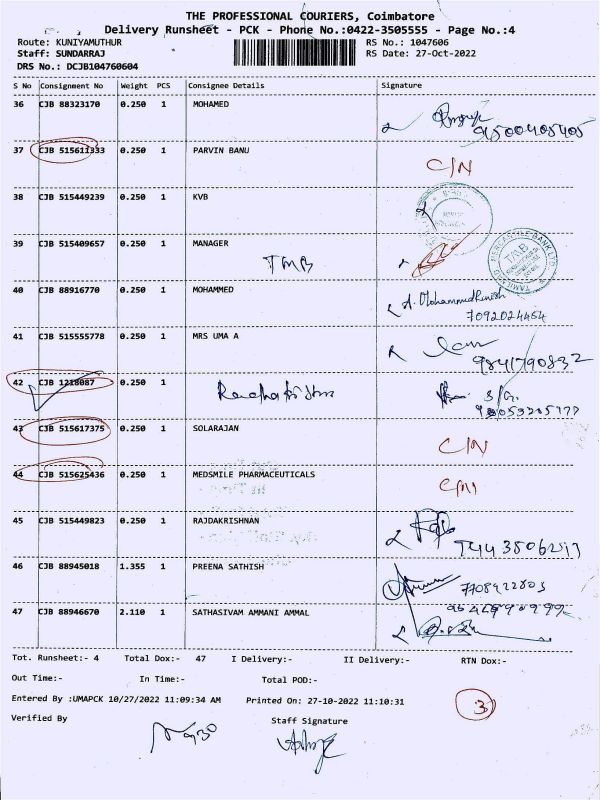 THE PROFESSIONAL COURIERS, Coimbatore
Delivery Runsheet - PCK - Phone No.:0422-3505555 - Page No.:4
Route: KUNIYAMUTHUR RS No.: 1047606
Staff: SUNDARRAJ RS Date: 27-Oct-2022
DRS No.: DCJB104760604
S No Consignment No Weight PCS Consignee Details Signature
36 CJB 88323170 0.250 1 MOHAMED
9500405405
37 CJB 515611333 0.250 1 PARVIN BANU C/N
38 CJB 515449239 0.250 1 KVB
39 CJB 515409657 0.250 1 MANAGER
TMB
TMB
40 CJB 88916770 0.250 1 MOHAMMED
7092024454
41 CJB 515555778 0.250 1 MRS UMA A
9841790832
42 CJB 1218087 0.250 1
43 CJB 515617375 0.250 1 SOLARAJAN C/N
44 CJB 515625436 0.250 1 MEDSMILE PHARMACEUTICALS C/N
45 CJB 515449823 0.250 1 RAJDAKRISHNAN
46 CJB 88945018 1.355 1 PREENA SATHISH
7708922803
47 CJB 88946670 2.110 1 SATHASIVAM AMMANI AMMAL
Tot. Runsheet:- 4 Total Dox:- 47 I Delivery:- II Delivery:- RTN Dox:-
Out Time:- In Time:- Total POD:-
Entered By :UMAPCK 10/27/2022 11:09:34 AM Printed On: 27-10-2022 11:10:31
3
Verified By Staff Signature